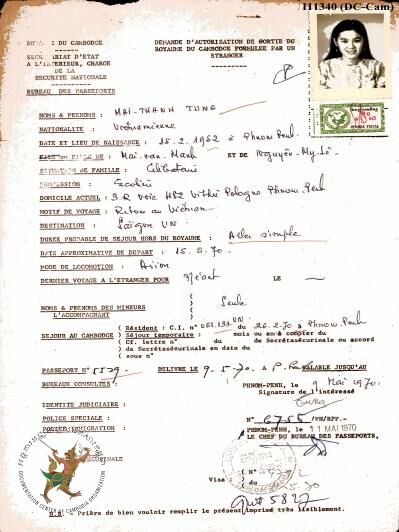 I11340 (DC-Cam)
ROYAUME DU CAMBODGE
DEMANDE D'AUTORISATION DE SORTIE DU
ROYAUME DU CAMBODGE FORMULEE PAR UN
ETRANGER
SECRETARIAT D'ETAT
A L'INTERIEUR, CHARGE
DE LA
SECURITE NATIONALE
BUREAU DES PASSEPORTS
NOMS & PRENOMS : MAI-THANH TUNG
NATIONALITE : Vietnamienne
DATE ET LIEU DE NAISSANCE : 15.2.1952 à Phnom Penh
FILLE DE : Mai-van-Manh ET DE Nguyên-My-Lê
SITUATION DE FAMILLE : Célibataire
PROFESSION : Ecolière
DOMICILE ACTUEL : 3.R voie H82 Vithei Pologne Phnom.Penh
MOTIF DE VOYAGE : Retour au Vietnam
DESTINATION : Saïgon VN
DUREE PROBABLE DE SEJOUR HORS DU ROYAUME : Aller simple
DATE APPROXIMATIVE DE DEPART : 15.5.70.
MODE DE LOCOMOTION : Avion
DERNIER VOYAGE A L'ETRANGER POUR Néant LE —
NOMS & PRENOMS DES MINEURS
L'ACCOMPAGNANT
Seule
SEJOUR AU CAMBODGE
( Résident : C.I. n° du 26.2.70 à Phnom Penh
( Séjour temporaire : mois ou an à compter du
( Cf. lettre n° du de Secrétasécurinale ou accord
( de Secrétasécurinale en date du
( sous n°
PASSEPORT N° 5529. DELIVRE LE 9-5-70. à P. VALABLE JUSQU'AU
BUREAUX CONSULTES :
PHNOM-PENH, le 9 Mai 1970.
Signature de l'intéressé
IDENTITE JUDICIAIRE :
POLICE SPECIALE :
POLICE IMMIGRATION :
N° 6755 /PN/BPP.-
PHNOM-PENH, le 11 MAI 1970
LE CHEF DU BUREAU DES PASSEPORTS,
Visa
( N°
( du
5827
DOCUMENTATION CENTER OF CAMBODIA ORGANIZATION
N.B. - Prière de bien vouloir remplir le présent imprimé très lisiblement.